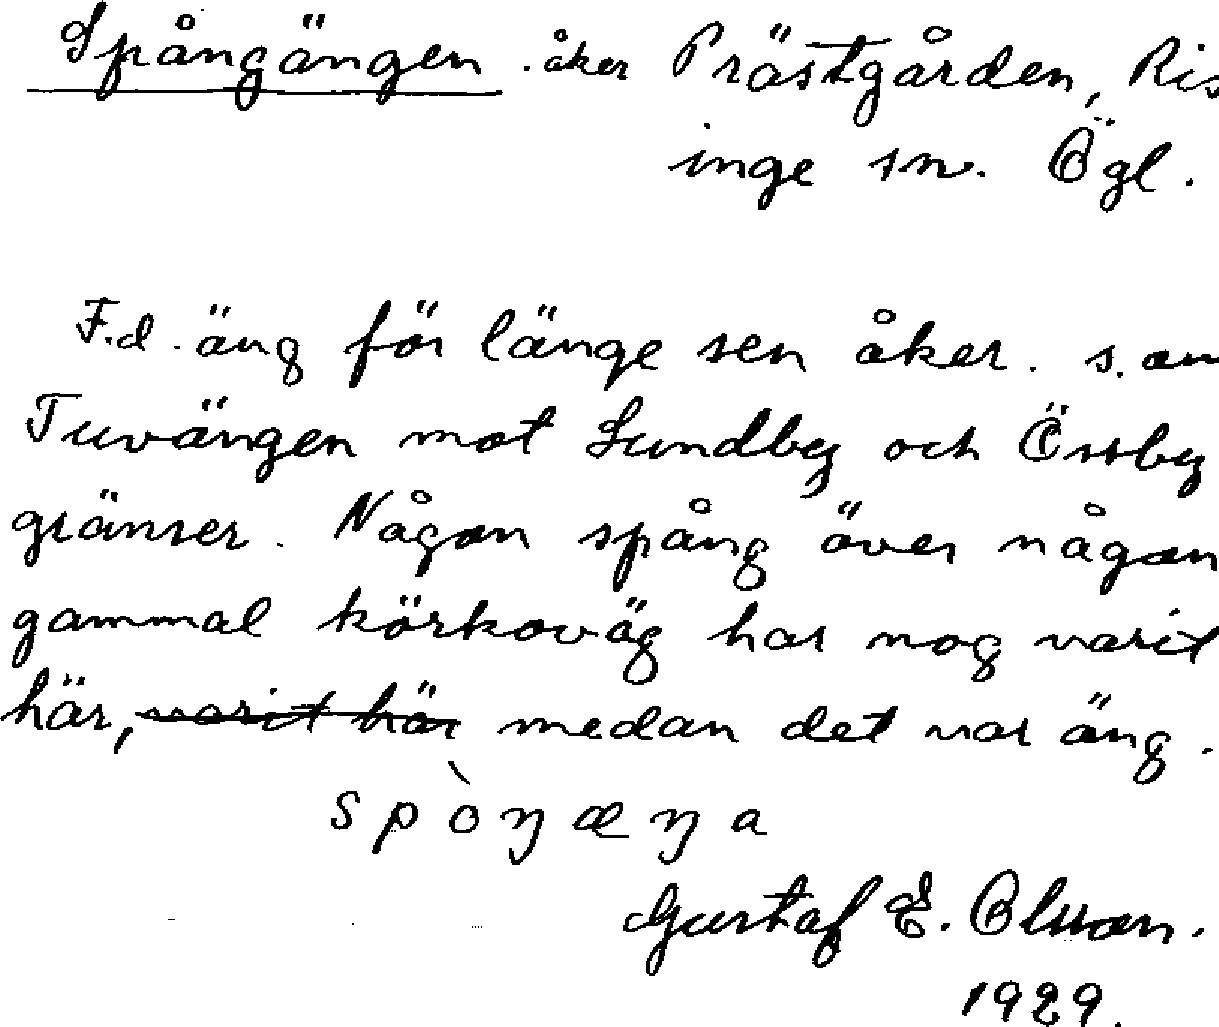 Spångängen. åker Prästgården, Ris
inge sn. Ögl.
F.d. äng för länge sen åker. s. om
Tuvängen mot Lundby och Össby
gränser. Någon spång över någon
gammal körkoväg har nog varit
här, varit här medan det var äng.
spòŋæŋa
Gustaf E. Olsson.
1929.